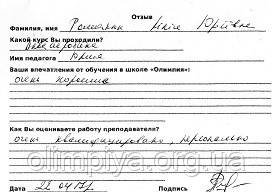 Отзыв
Фамилия, имя Романюк Юлія Юріївна
Какой курс Вы проходили?
Имя педагога Юлия
Ваши впечатления от обучения в школе «Олимпия»:
очень хорошие
Как Вы оцениваете работу преподавателя?
очень квалифицировано, персонально
olimpiya.org.ua
Дата 22.04.17г. Подпись